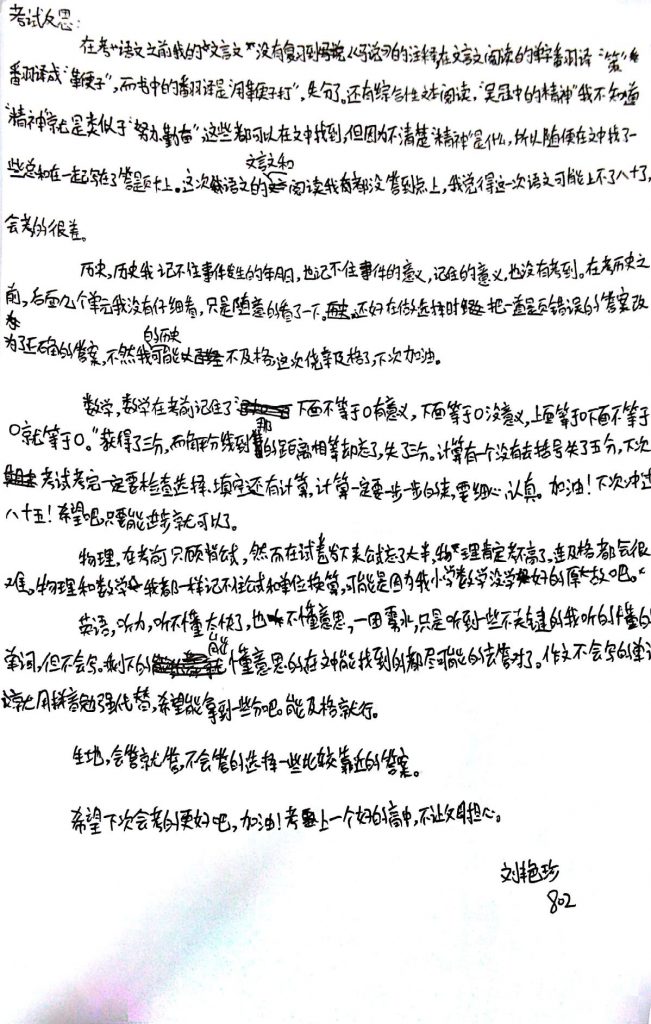 考试反思:
在考语文之前我的"文言文"没有复习到《马说》的注释,在文言文阅读的翻译"策"
翻译成"鞭子",而书中的翻译是用鞭子打",失分了。还有综合性阅读,"吴冠中的精神"我不知道
"精神"就是类似于"努力勤奋"这些都可以在文中找到,但因为不清楚"精神"是什么,所以随便在文中找了一
些总和在一起写在了答题卡上。这次语文的文言文和阅读我都没答到点上,我觉得这一次语文可能上不了八十了,
会考的很差。
历史,历史我记不住事件发生的年月日,也记不住事件的意义,记住的意义,也没有考到。在考历史之
前,后面几个单元我没有仔细看,只是随意的看了一下。还好在做选择时把一直是错误的答案改
为了正确的答案,不然我的历史可能不及格,这次侥幸及格了,下次加油。
数学,数学在考前记住了"下面不等于0有意义,下面等于0没意义,上面等于0下面不等于
0就等于0。"获得了三分,而角平分线到那的距离相等却忘了,失了三分。计算有一个没有去括号失了五分,下次
考试考完一定要检查选择、填空还有计算,计算一定要一步一步的来,要细心、认真。加油!下次冲过
八十五!希望吧,只要能进步就可以了。
物理,在考前只顾背公式,然而在试卷发下来公式忘了大半,物理肯定考不高了,连及格都会很
难。物理和数学我都一样记不住公式和单位换算,可能是因为我小学数学没学好的原故吧。
英语,听力,听不懂太快了,也听不懂意思,一团雾水,只是听到一些不关键的我听的懂的
单词,但不会写。剩下的自己懂意思的在文中能找到的都尽可能的去答对了。作文不会写的单词
就用拼音勉强代替,希望能拿到一些分吧。能及格就行。
生地,会答就答,不会答的选择一些比较靠近的答案。
希望下次会考的更好吧,加油!考上一个好的高中,不让父母担心。
刘艳珍
802